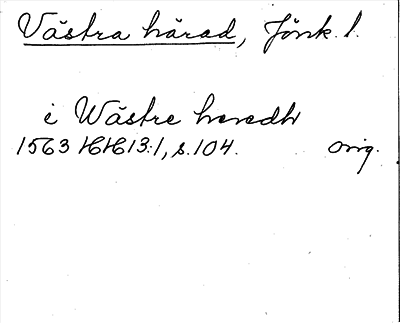 Västra härad, Jönk. l.
i Wästre heredh
1563 HH13:1, s.104. orig.